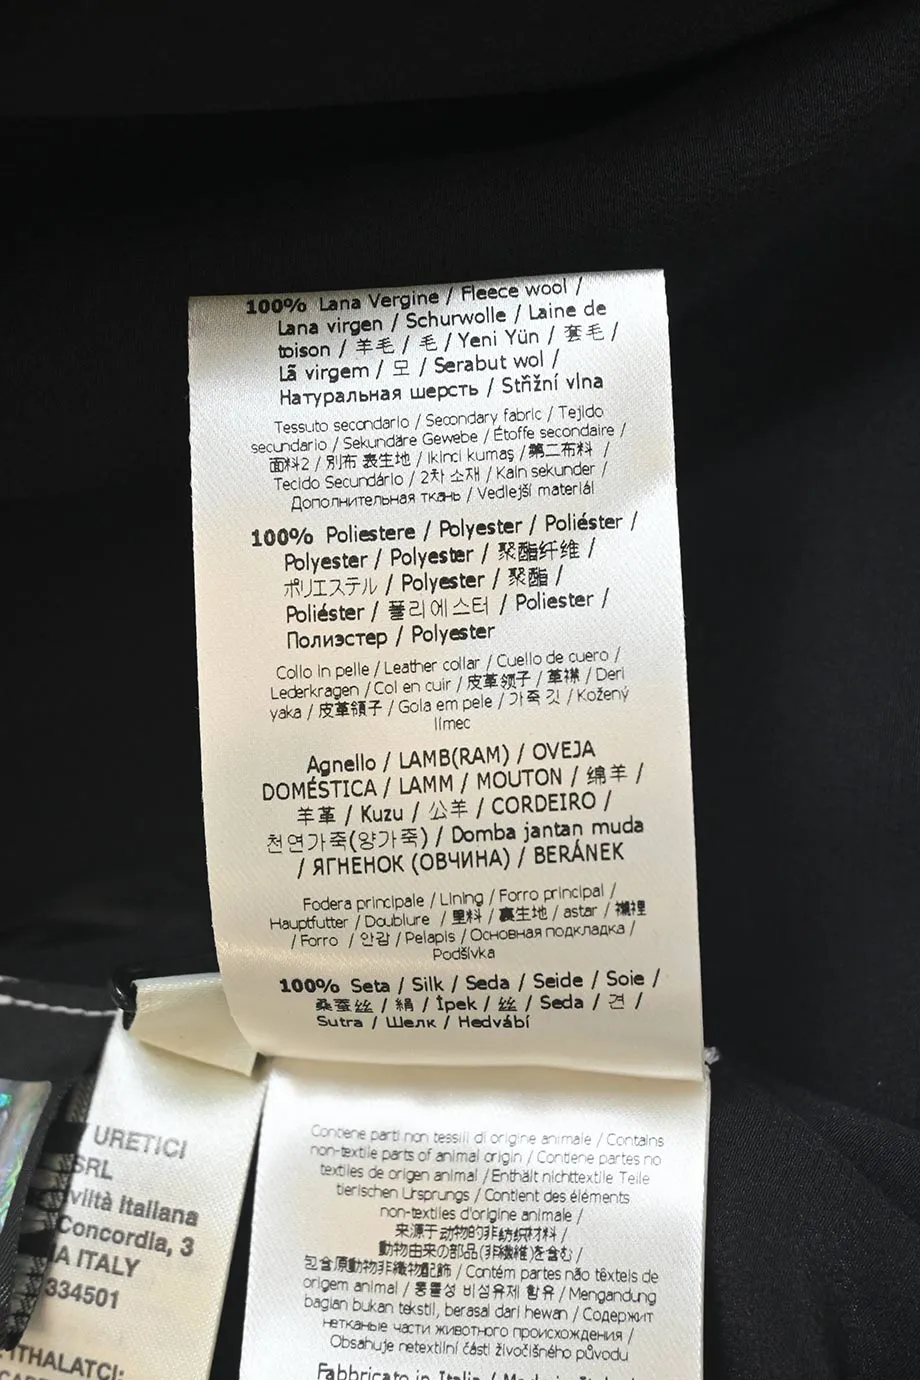 100% Lana Vergine / Fleece wool /
Lana virgen / Schurwolle / Laine de
toison / 羊毛 / 毛 / Yeni Yün / 套毛 /
Lã virgem / 모 / Serabut wol /
Натуральная шерсть / Střižní vlna
Tessuto secondario / Secondary fabric / Tejido
secundario / Sekundäre Gewebe / Étoffe secondaire /
面料2 / 別布 表生地 / ikinci kumaş / 第二布料 /
Tecido Secundário / 2차 소재 / Kain sekunder /
Дополнительная ткань / Vedlejší materiál
100% Poliestere / Polyester / Poliéster /
Polyester / Polyester / 聚酯纤维 /
ポリエステル / Polyester / 聚酯 /
Poliéster / 폴리에스터 / Poliester /
Полиэстер / Polyester
Collo in pelle / Leather collar / Cuello de cuero /
Lederkragen / Col en cuir / 皮革领子 / 革襟 / Deri
yaka / 皮革領子 / Gola em pele / 가죽 깃 / Kožený
límec
Agnello / LAMB(RAM) / OVEJA
DOMÉSTICA / LAMM / MOUTON / 绵羊 /
羊革 / Kuzu / 公羊 / CORDEIRO /
천연가죽(양가죽) / Domba jantan muda
/ ЯГНЕНОК (ОВЧИНА) / BERÁNEK
Fodera principale / Lining / Forro principal /
Hauptfutter / Doublure / 里料 / 裏生地 / astar / 襯裡
/ Forro / 안감 / Pelapis / Основная подкладка /
Podšívka
100% Seta / Silk / Seda / Seide / Soie /
桑蚕丝 / 絹 / İpek / 丝 / Seda / 견 /
Sutra / Шелк / Hedvábí
URETICI
SRL
viltà Italiana
Concordia, 3
A ITALY
334501
ITHALATCI:
Contiene parti non tessili di origine animale / Contains
non-textile parts of animal origin / Contiene partes no
textiles de origen animal / Enthält nichttextile Teile
tierischen Ursprungs / Contient des éléments
non-textiles d'origine animale /
来源于动物的非纺织材料 /
動物由来の部品(非繊維)を含む /
包含原動物非織物配飾 / Contém partes não têxteis de
origem animal / 동물성 비섬유제 함유 / Mengandung
bagian bukan tekstil, berasal dari hewan / Содержит
нетканые части животного происхождения /
Obsahuje netextilní části živočišného původu
Fabbricato in Italia / Made in Italy /